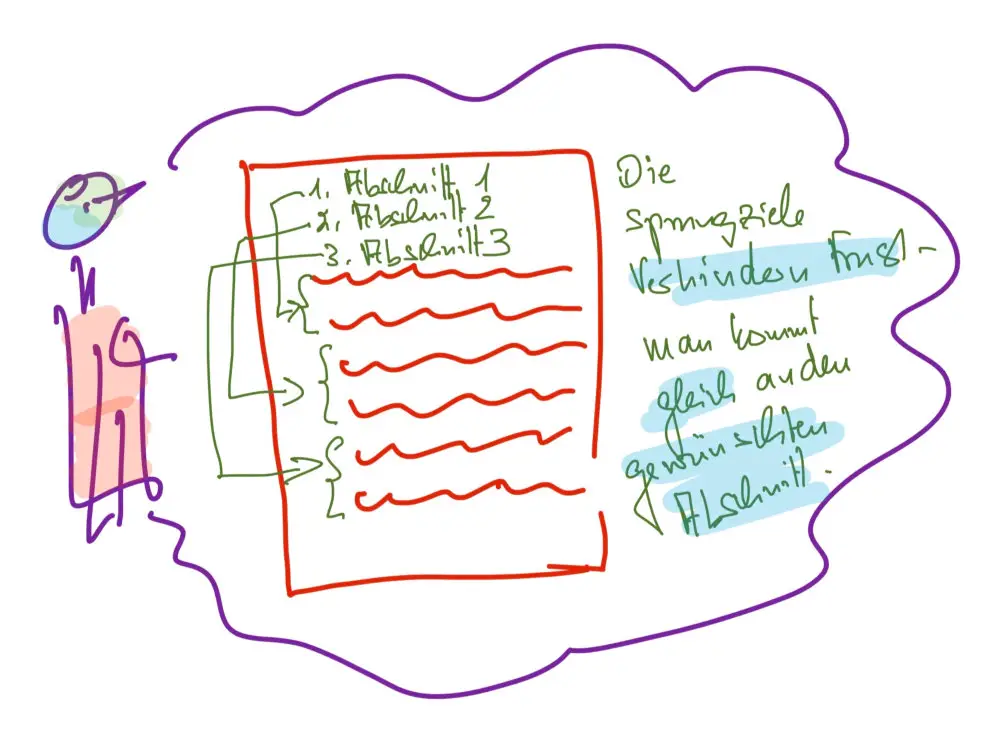 1. Abschnitt 1
2. Abschnitt 2
3. Abschnitt 3
Die
Sprungziele
Verhindern Frust -
man kommt
gleich an den
gewünschten
Abschnitt.